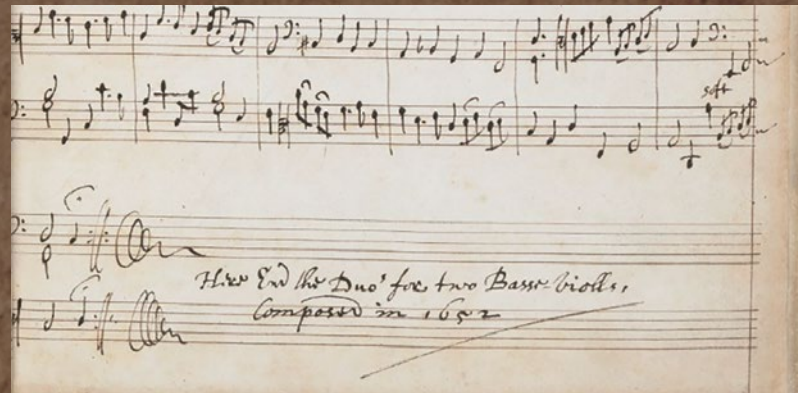 soft
Here End the Duo's for two Basse-violls,
Composed in 1652